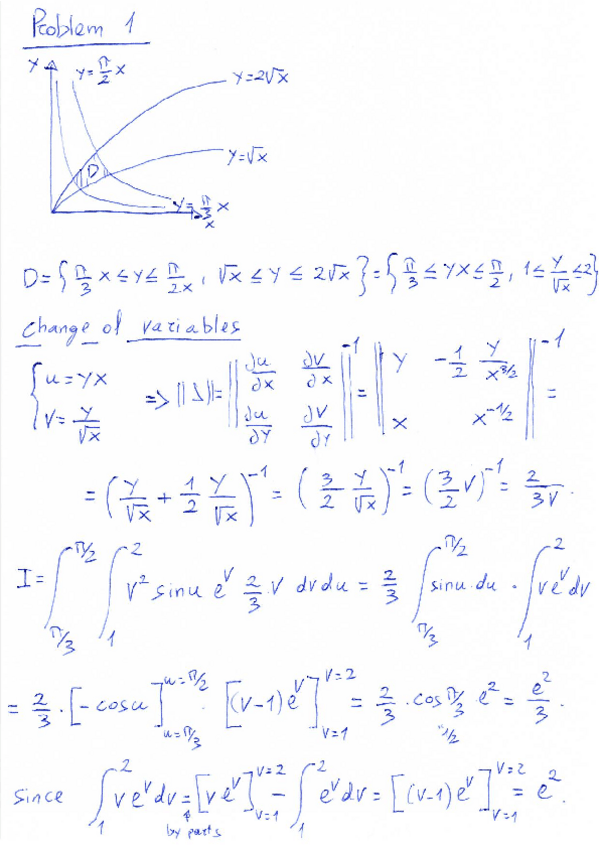 Problem 1
y
y = π/2 x
y = 2√x
y = √x
D
y = π/3 x
x
D = { π/3 x ≤ y ≤ π/2x , √x ≤ y ≤ 2√x } = { π/3 ≤ yx ≤ π/2 , 1 ≤ y/√x ≤ 2 }
Change of variables
{ u = yx
v = y/√x => ||Δ|| = || ∂u/∂x ∂v/∂x ; ∂u/∂y ∂v/∂y ||^-1 = || y -1/2 y/x^3/2 ; x x^-1/2 ||^-1 =
= ( y/√x + 1/2 y/√x )^-1 = ( 3/2 y/√x )^-1 = ( 3/2 v )^-1 = 2/3v .
I = ∫_π/3^π/2 ∫_1^2 v² sinu e^v 2/3 · v dv du = 2/3 ∫_π/3^π/2 sinu · du · ∫_1^2 v e^v dv
= 2/3 · [ -cosu ]_u=π/3^u=π/2 · [ (v-1) e^v ]_v=1^v=2 = 2/3 · cos π/3 e² = e²/3 .
1/2
since ∫_1^2 v e^v dv = [ v e^v ]_v=1^v=2 - ∫_1^2 e^v dv = [ (v-1) e^v ]_v=1^v=2 = e² .
by parts